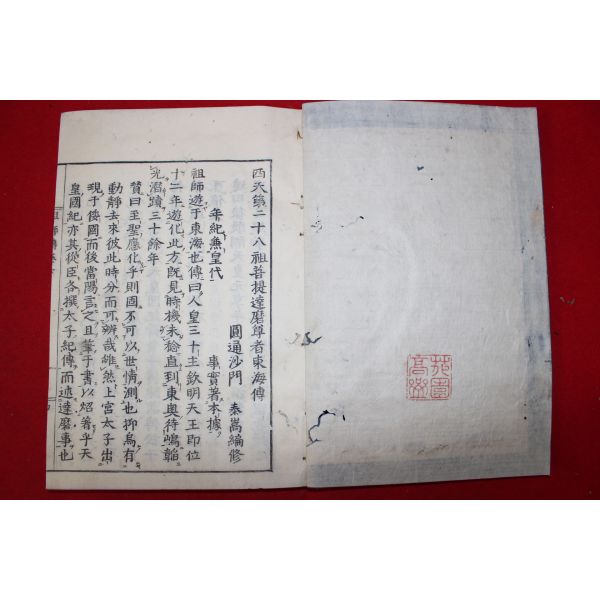 西天第二十八祖菩提達磨尊者東海傳
圓通沙門 泰嵩編修
年紀無皇代 事實著本據
祖師遊于東海也傳曰人皇三十主欽明天王即位
十二年遊化此方既見時機未稔直到東奥待嶋
光潜蹟三十餘年
贊曰至聖應化乎則固不可以世情測也抑烏有
動靜去來彼此時分而可辨哉雖然上宮太子出
現于倭國而後當陽言之且筆于書以炤著乎天
皇國紀亦其從臣各撰太子紀傳而述達磨事也